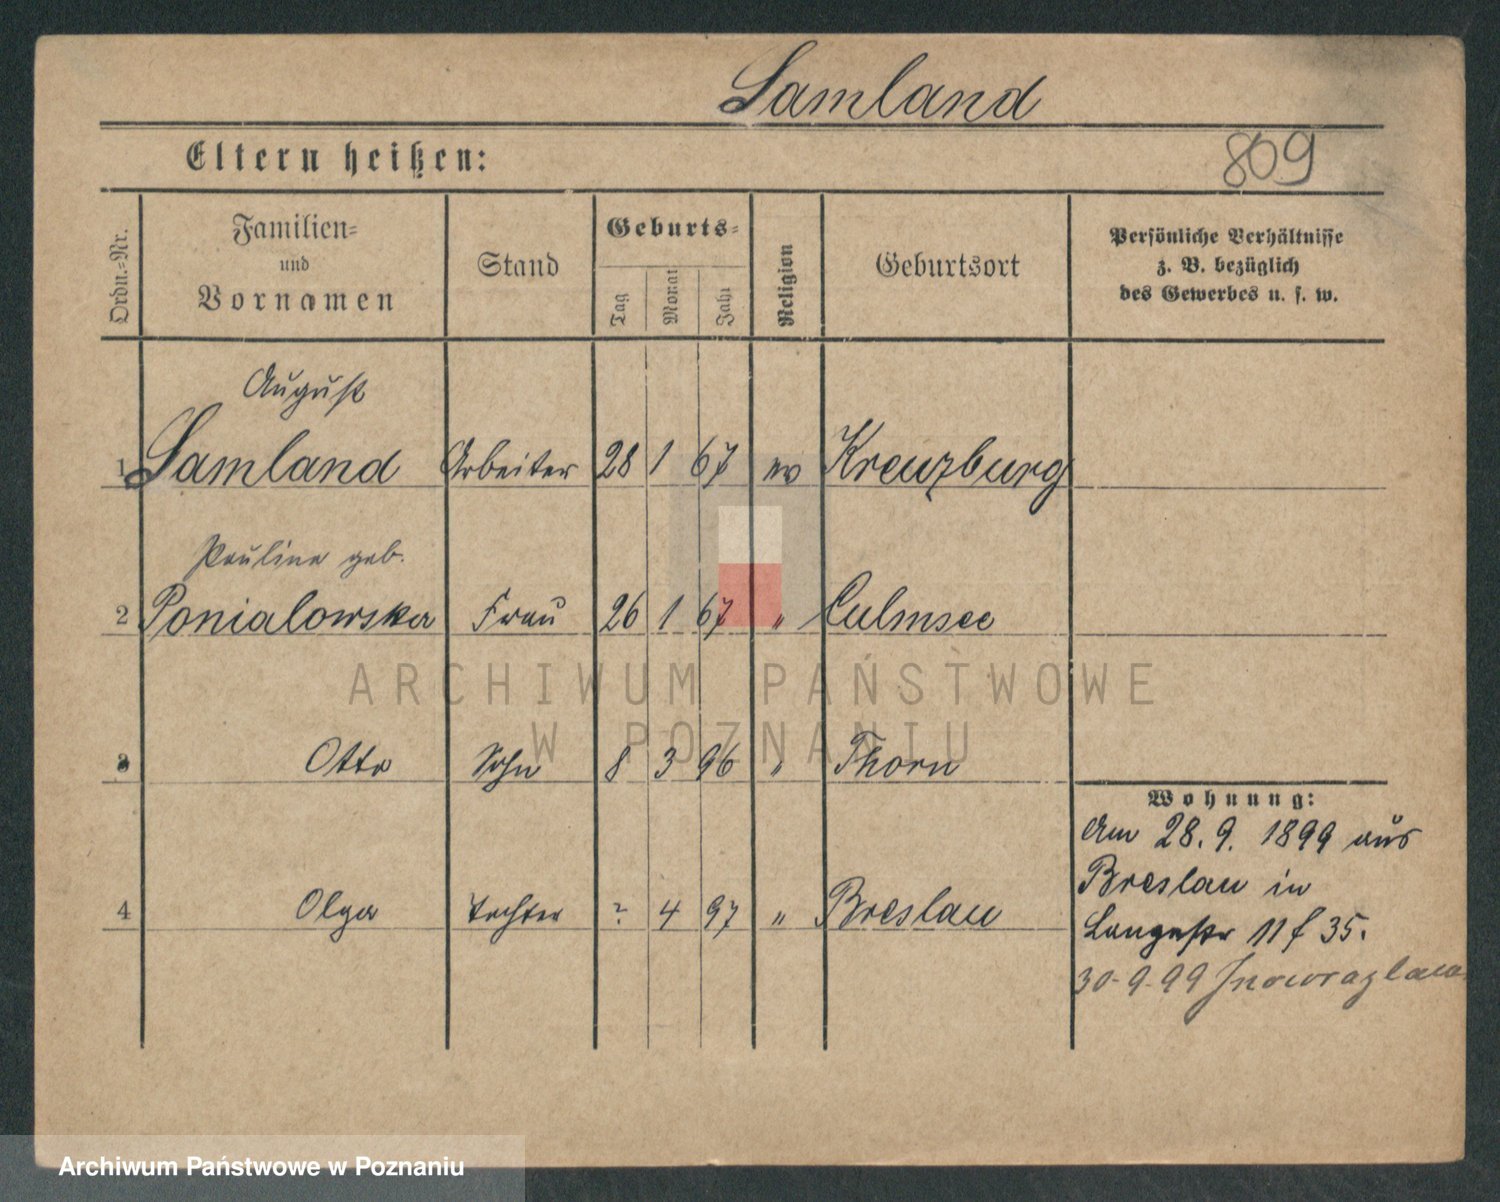 Samland
Eltern heißen:
809
Ordn.-Nr.
Familien-
und
Vornamen
Stand
Geburts-
Tag
Monat
Jahr
Religion
Geburtsort
Persönliche Verhältnisse
z. B. bezüglich
des Gewerbes u. s. w.
August
1 Samland Arbeiter 28 1 67 ev Kreuzburg
Pauline geb.
2 Ponialowska Frau 26 1 67 " Culmsee
ARCHIWUM PAŃSTWOWE
W POZNANIU
3 Otto Sohn 8 3 96 " Thorn
Wohnung:
Am 28. 9. 1899 aus
Breslau in
4 Olga Tochter ? 4 97 " Breslau
Langestr 11 f 35.
30-9-99 Inowrazlaw
Archiwum Państwowe w Poznaniu